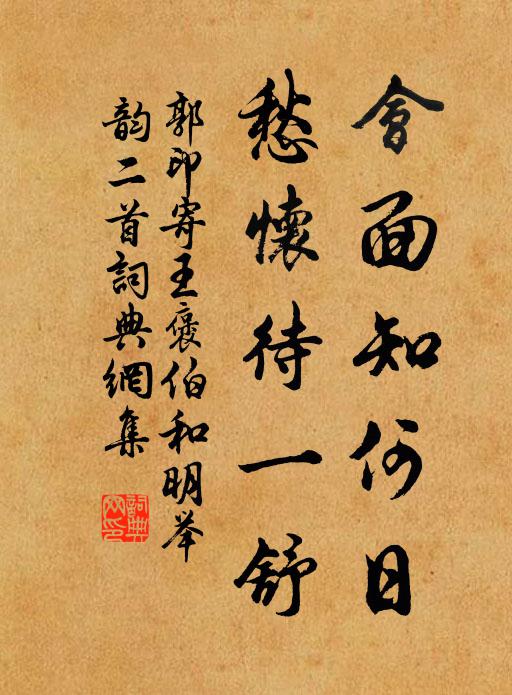 會面知何日
愁懷待一舒
郭印寄王褒伯和明举
韵二首詞典網集
詞典網印